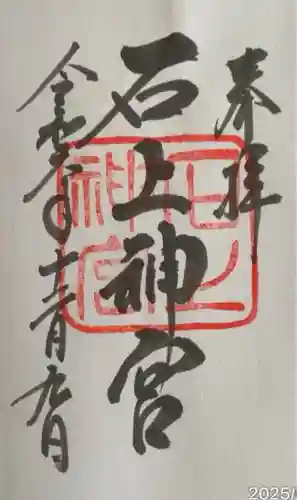 奉拝
石上神宮
令和元年十二月九日
石上
神宮
2025/